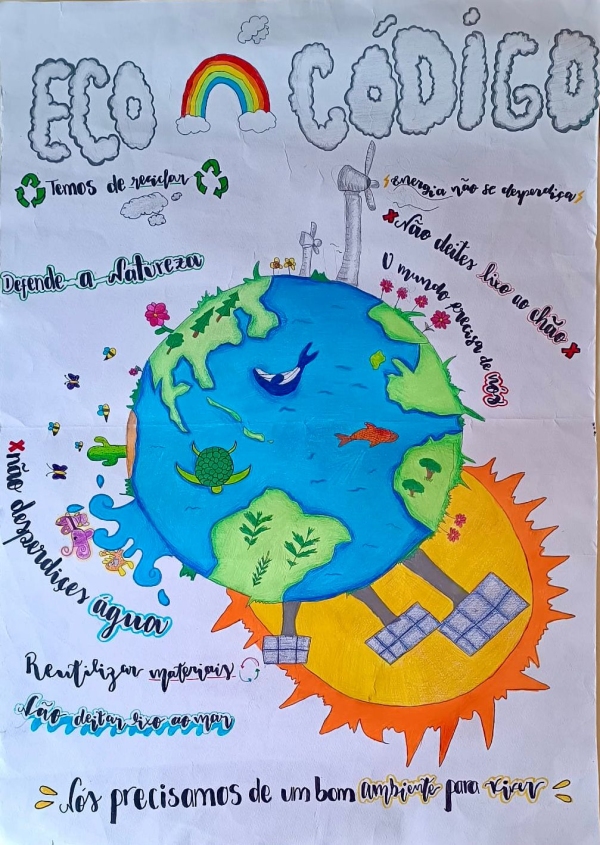 ECO CÓDIGO
Temos de reciclar
energia não se desperdiça
Não deites lixo ao chão
Defende a Natureza
O mundo precisa de nós
não desperdiçes água
Reutilizar materiais
Não deitar lixo ao mar
Nós precisamos de um bom ambiente para viver